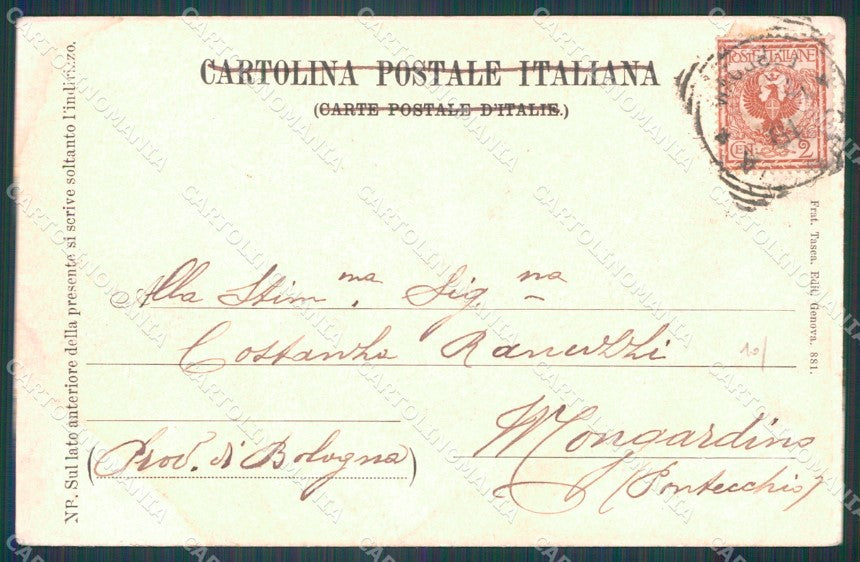 CARTOLINA POSTALE ITALIANA
(CARTE POSTALE D'ITALIE.)
POSTE ITALIANE
CEN. 2
NB. Sul lato anteriore della presente si scrive soltanto l'indirizzo.
Alla Stim.ma Sig.na
Costanza Ranuzzi
10/
Mongardino
(Prov. di Bologna)
(Pontecchio)
Frat. Tasca. Edit. Genova. 881.
CARTOLINOMANIA